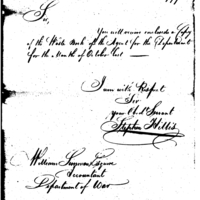 Sir,
You will receive enclosed a Copy
of the Waste Book of the Agent for the Department
for the Month of October last —
I am with Respect
Sir
your Obdt Servant
Stephen Hillis
William Simmons Esquire
Accountant
Department of War